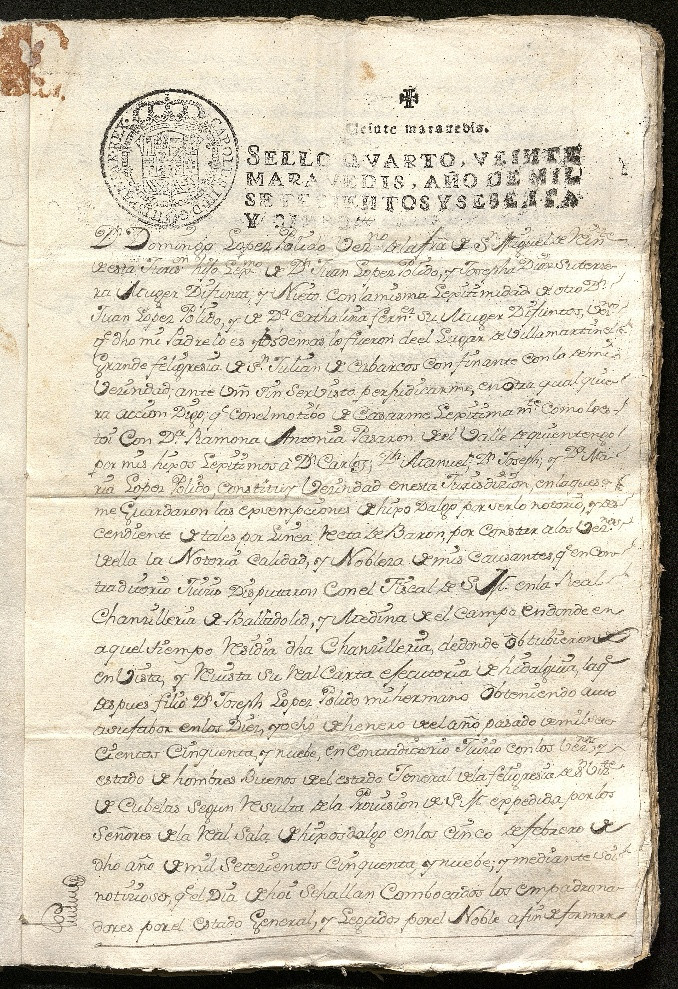 Veinte maravedis.
SELLO QVARTO, VEINTE
MARAVEDIS, AÑO DE MIL
SETECIENTOS Y SESENTA
Y
Dn. Domingo Lopez Polido Vez.no de la fra de Sn. Miguel de
en esta Juris.n hijo Lex.mo de Dn. Juan Lopez Polido, y Josepha Diaz Su terse-
ra Muger Difunta, y Nieto con la misma Lexitimidad de otro Dn.
Juan Lopez Polido, y de Da. Cathalina Fern.z Su Muger Difuntos,
q.e dho mi Padre lo es y los demas lo fueron de el Lugar de Villamartin el
Grande feligresia de Sn. Julian de Cabarcos confinante con la
Vezindad, ante Vm sin ser visto perjudicarme, en otra qual quie-
ra accion Digo, q.e con el motibo de Casarme Lexitima m.te como les-
toi Con Da. Ramona Antonia Pasaron de el Valle de quien tengo
por mis hixos Lexitimos à Dn. Carlos, Dn. Manuel, Dn. Joseph, y Da. Ma-
ria Lopez Polido constitui Vezindad en esta Jurisdizion, en la que se
me Guardaron las exsempciones de hixo Dalgo por serlo notorio, y des-
cendiente de tales por Linea Recta de Baron, por constar a los Vez.nos
de ella la Notoria Calidad, y Nobleza de mis Causantes, q.e en con-
traditorio Juizio Disputaron con el Fiscal de S. M. en la Real
Chanzilleria de Balladolid, y Medina de el Campo en donde en
aquel tiempo Residia dha Chanzilleria, de donde obtubieron
en Vista, y Revista Su Real Carta executoria de hidalguia, la q.e
Despues filio Dn. Joseph Lopez Polido mi hermano obteniendo auto
a su fabor en los Diez, y ocho de henero de el año pasado de mil sete-
cientos Cinquenta, y nuebe, en Contraditorio Juizio con los Vez.nos, y
estado de hombres Buenos de el estado General de la feligresia de
de Cubelas Segun Resulta de la Provision de S. M. expedida por los
Señores de la Real Sala de hixos dalgo en los Cinco de febrero de
dho año de mil Setezientos Cinquenta, y nuebe; y mediante soi
notizioso, q.e el Dia de hoi Se hallan Combocados los empadrona-
dores por el estado General, y Legados por el Noble a fin de formar